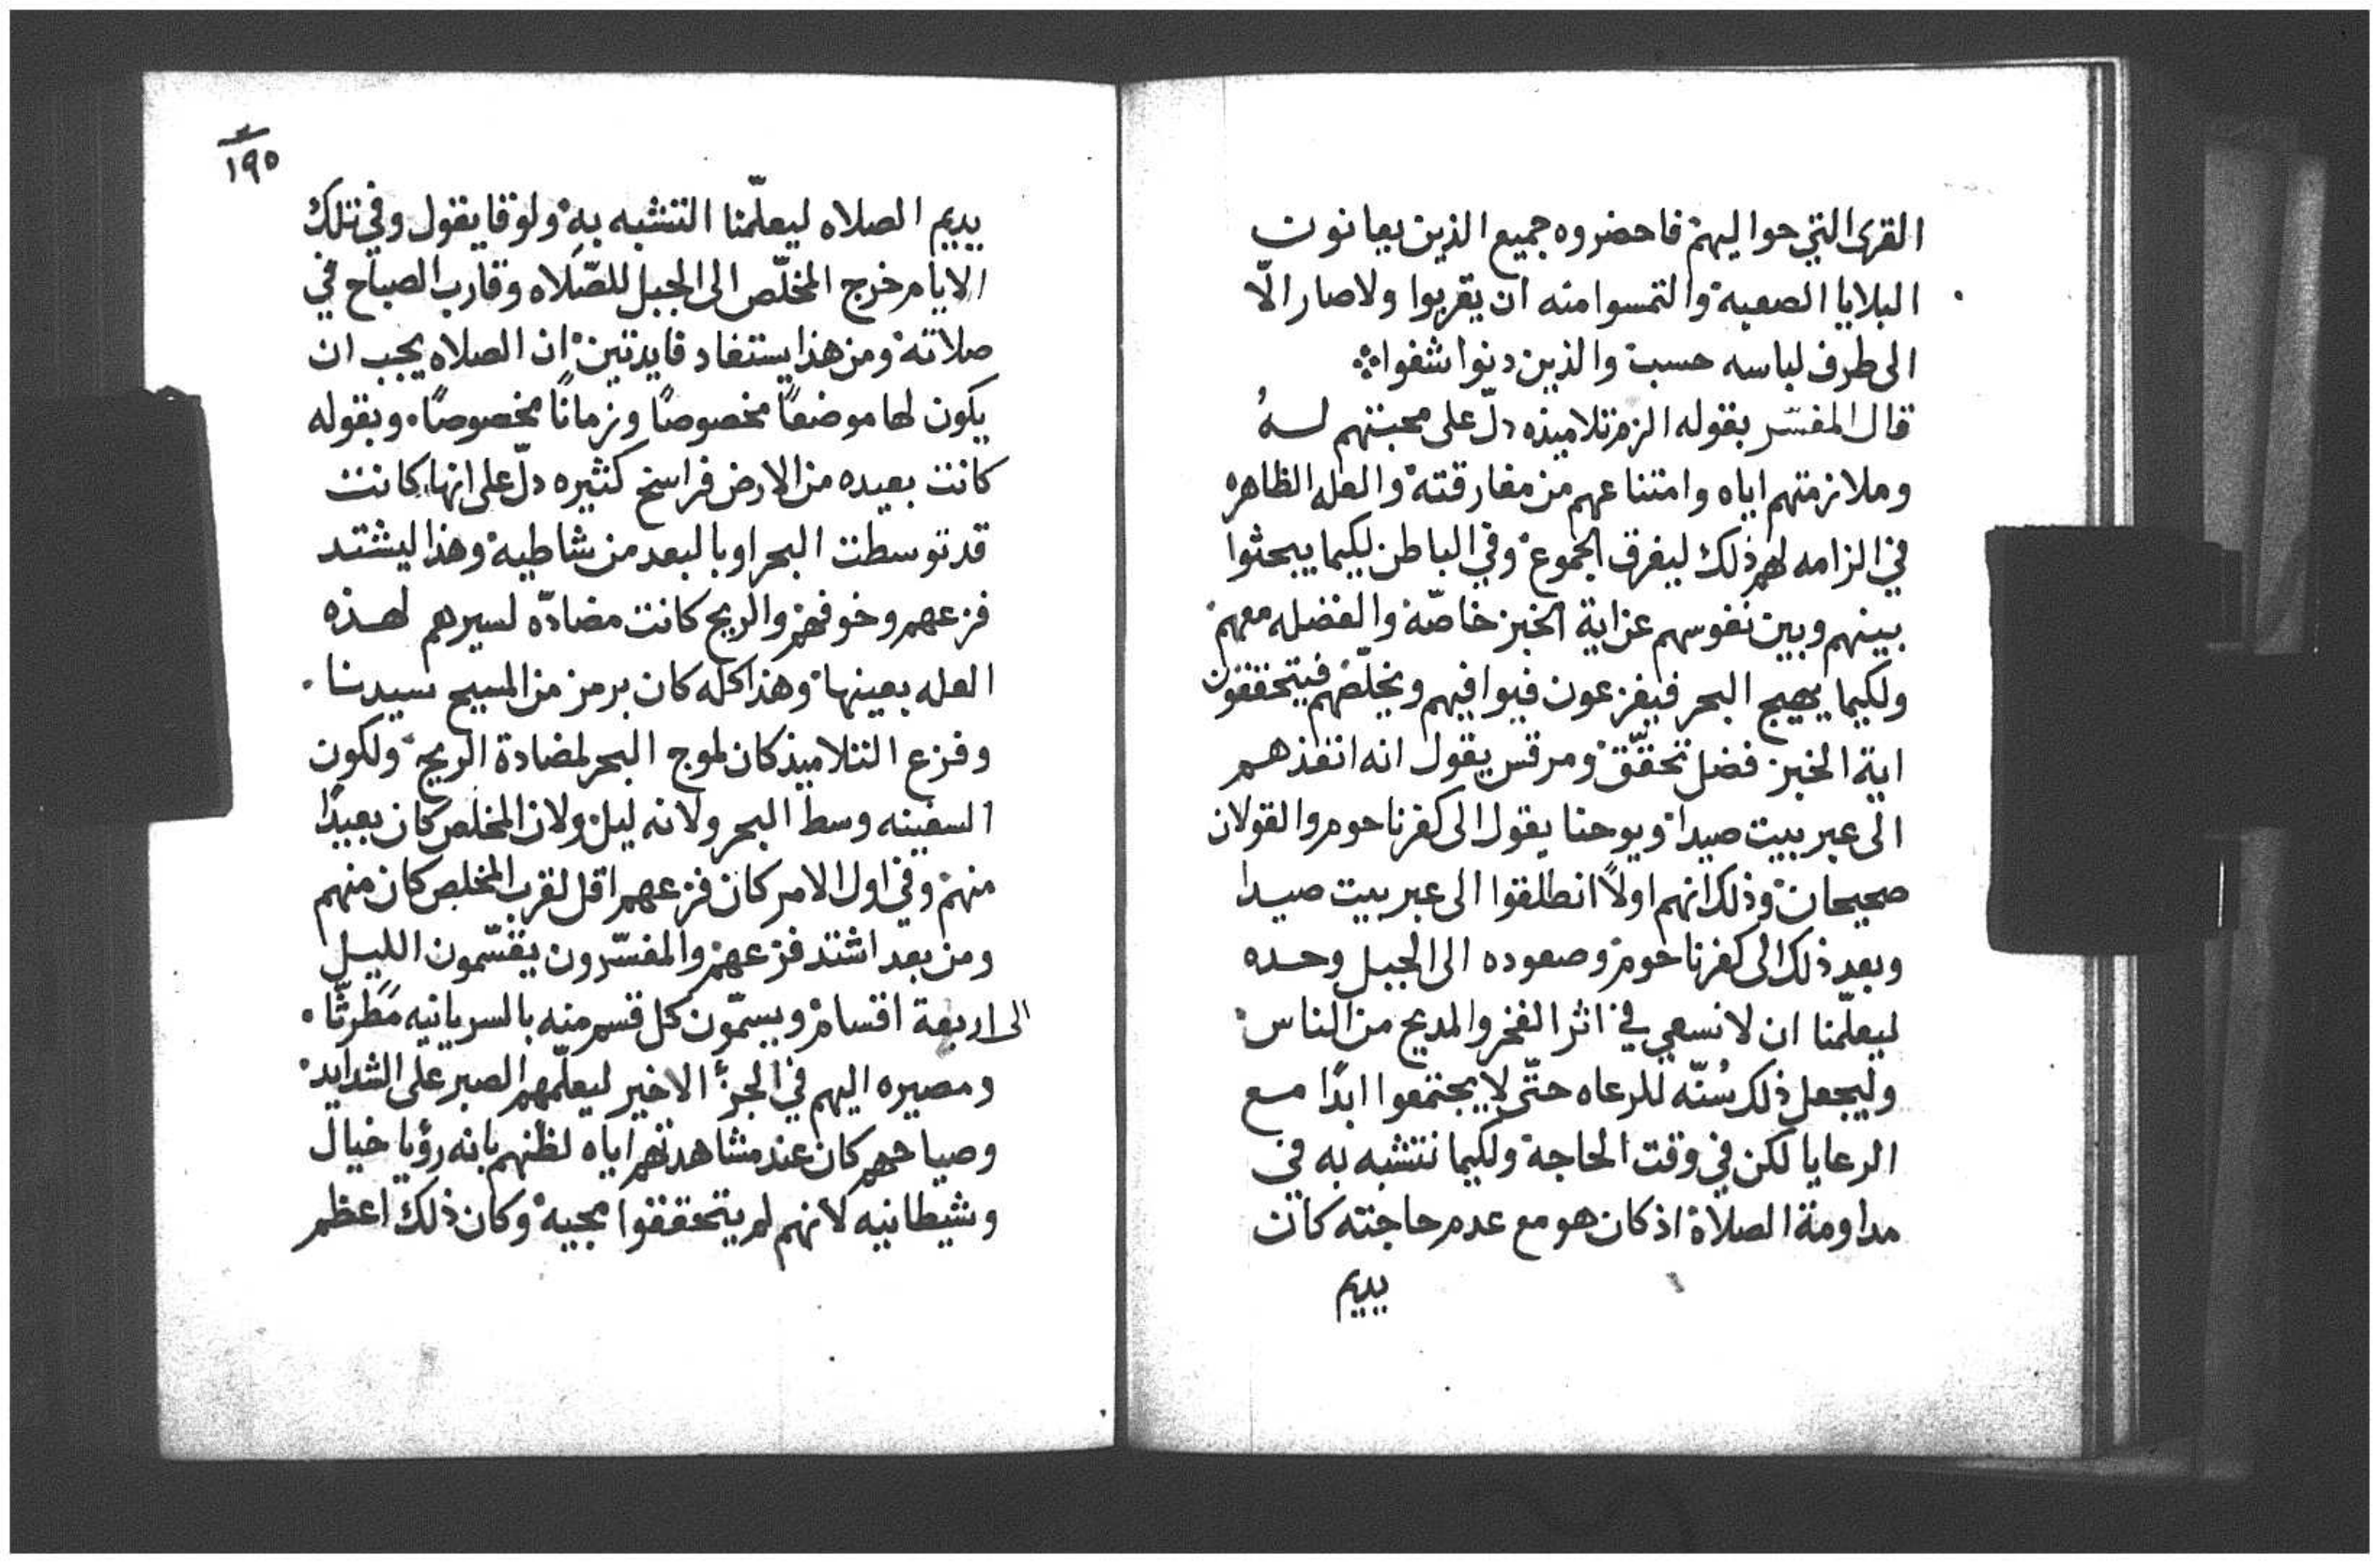 القرى التي حواليهم فاحضروه جميع الذين يعانون
البلايا الصعبة والتمسوا منه ان يقربوا ولا صار الّا
الى طرف لباسه حسب والذين دنوا شفوا
قال المفسّر بقوله الزم تلاميذه دلّ على محبتهم لهُ
وملازمتهم اياه وامتناعهم من مفارقته والعله الظاهره
في الزامه لهم ذلك ليفرق الجموع وفي الباطن ليكيما يبحثوا
بينهم وبين نفوسهم عن اية الخبز خاصّة والفضله معهم
ولكيما يهيج البحر فيفزعون فيوافيهم ويخلّصهم فيتحققون
اية الخبز فضل تحقّق ومرقس يقول انه انفذهم
الى عبر بيت صيدا ويوحنا يقول الى كفرناحوم والقولان
صحيحان وذلك انهم اولاً انطلقوا الى عبر بيت صيدا
وبعد ذلك الى كفرناحوم وصعوده الى الجبل وحده
ليعلّمنا ان لا نسعى في اثر الفخر والمديح من الناس
وليجعل ذلك سُنّه للرعاه حتّى لا يجتمعوا ابدًا مع
الرعايا لكن في وقت الحاجة ولكيما نتشبه به في
مداومة الصلاة اذ كان هو مع عدم حاجته كان
يديم
١٩٥
يديم الصلاه ليعلّمنا التشبه به ولوقا يقول وفي تلك
الايام خرج المخلّص الى الجبل للصّلاه وقارب الصباح في
صلاته ومن هذا يستفاد فايدتين ان الصلاه يجب ان
يكون لها موضعًا مخصوصًا وزمانًا مخصوصًا. وبقوله
كانت بعيده من الارض فراسخ كثيره دلّ على انها كانت
قد توسطت البحر او بالبعد من شاطيه وهذا ليشتد
فزعهم وخوفهم والريح كانت مضادّه لسيرهم لهذه
العله بعينها وهذا كله كان برمز من المسيح سيدنا.
وفزع التلاميذ كان لموج البحر لمضادة الريح ولكون
السفينه وسط البحر ولانه ليل ولان المخلص كان بعيدًا
منهم وفي اول الامر كان فزعهم اقل لقرب المخلص كان منهم
ومن بعد اشتد فزعهم والمفسّرون يقسّمون الليل
الى اربعة اقسام ويسمّون كل قسم منه بالسريانيه مَطَرثّا.
ومصيره اليهم في الجزء الاخير ليعلّمهم الصبر على الشدايد
وصياحهم كان عند مشاهدتهم اياه لظنهم بانه رؤيا خيال
وشيطانيه لأنهم لم يتحققوا مجيه وكان ذلك اعظم